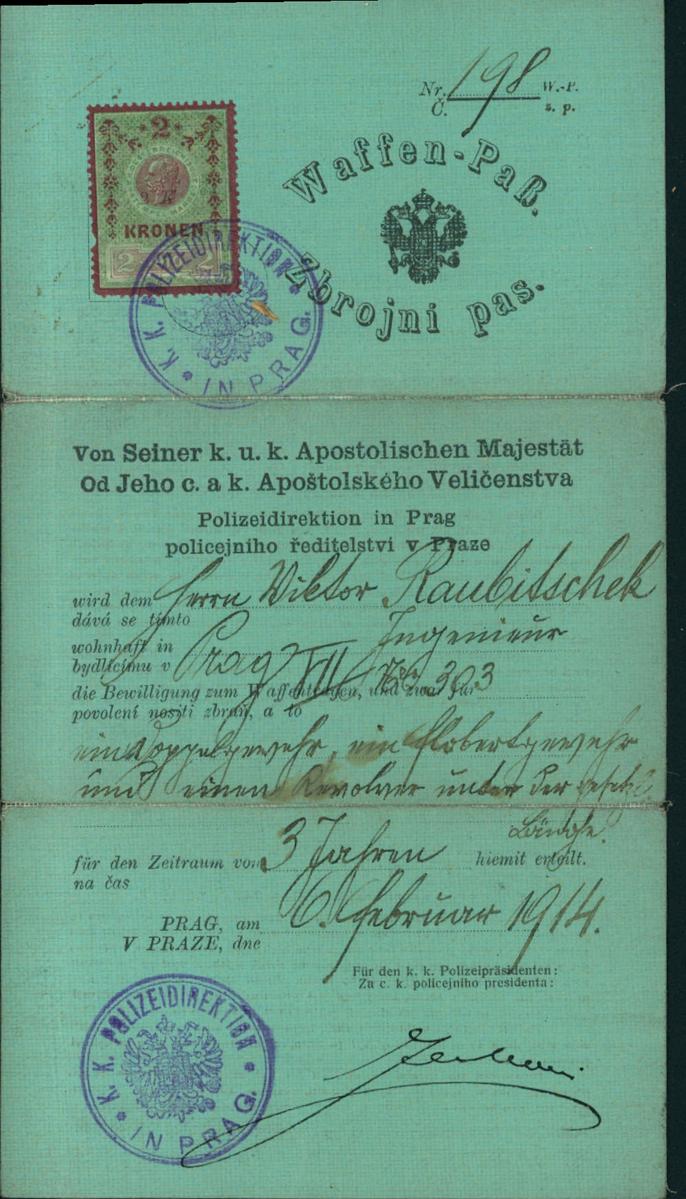 Nr. 198 W.-P.
Č. z. p.
2
KRONEN
2 2
K. K. POLIZEIDIREKTION
IN PRAG.
Waffen-Paß.
Zbrojní pas.
Von Seiner k. u. k. Apostolischen Majestät
Od Jeho c. a k. Apoštolského Veličenstva
Polizeidirektion in Prag
policejního ředitelství v Praze
wird dem Herrn Viktor Raubitschek
dává se tímto
Ingenieur
wohnhaft in Prag VII No 303
bydlícímu v
die Bewilligung zum Waffentragen, und zwar für
povolení nositi zbraň, a to
ein Doppelgewehr, ein Flobertgewehr
und einen Revolver unter der
Länge.
für den Zeitraum von 3 Jahren hiemit ertgilt.
na čas
PRAG, am 6. Februar 1914.
V PRAZE, dne
Für den k. k. Polizeipräsidenten:
Za c. k. policejního presidenta:
K. K. POLIZEIDIREKTION
IN PRAG.